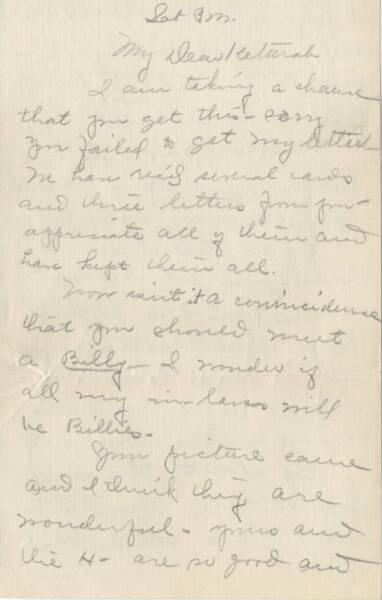 Sat P.M.
My Dear Keturah
I am taking a chance
that you get this - sorry
you failed to get my letter -
We have rec'd several cards
and three letters from you -
appreciate all of them and
have kept them all.
Now isn't it a conincidence
that you should meet
a Billy - I wonder if
all my in-laws will
be Billies -
Your picture came
and I think they are
wonderful - yours and
the H - are so good and